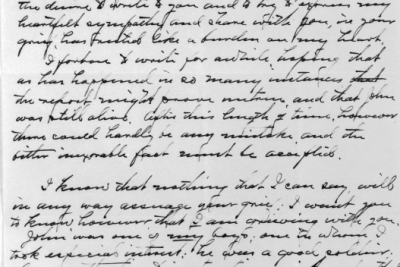 the desire to write to you and to try to express my
heartfelt sympathy and share with you, in your
grief, has rested like a burden on my heart.
I forbore to write for awhile hoping that
as has happened in so many instances that
the report might prove untrue, and that John
was still alive. After this length of time, however
there could hardly be any mistake and the
bitter inexorable fact must be accepted.
I know that nothing that I can say, will
in any way assuage your grief. I want you
to know however that I am grieving with you.
John was one of my boys, one in whom I
took especial interest; he was a good soldier,